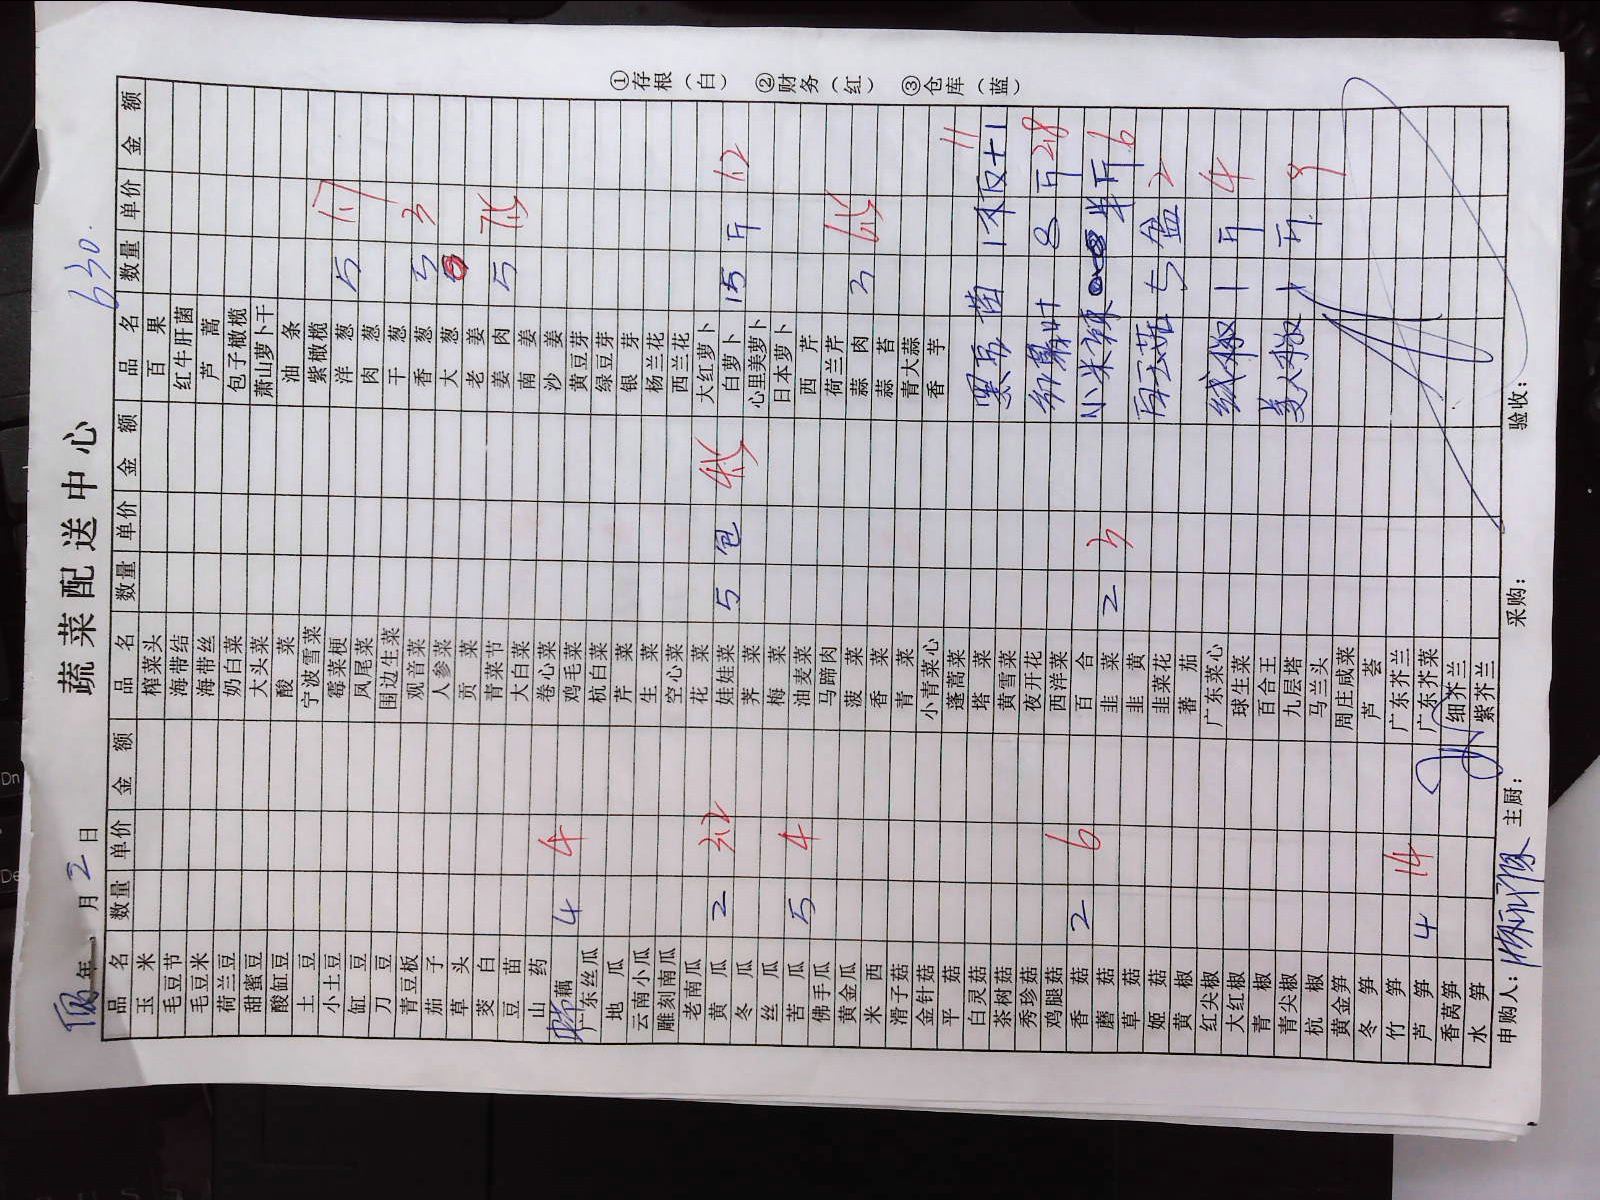 蔬菜配送中心
630.
年 月 2 日
品名 数量 单价 金额 品名 数量 单价 金额 品名 数量 单价 金额
玉米 榨菜头 百果
毛豆节 海带结 红牛肝菌
毛豆米 海带丝 芦蒿
荷兰豆 奶白菜 包子橄榄
甜蜜豆 大头菜 萧山萝卜干
酸缸豆 酸菜 油条
土豆 宁波雪菜 紫橄榄
小土豆 霉菜梗 洋葱 5
缸豆 凤尾菜 肉葱
刀豆 围边生菜 干葱
青豆板 观音菜 香葱 5 3
茄子 人参菜 大葱
草头 贡菜 老姜
茭白 青菜节 姜肉 5
豆苗 大白菜 南姜
山药 卷心菜 沙姜
藕 4 4 鸡毛菜 黄豆芽
广东丝瓜 杭白菜 绿豆芽
地瓜 芹菜 银芽
云南小瓜 生菜 杨兰花
雕刻南瓜 空心菜 西兰花
老南瓜 花菜 大红萝卜
黄瓜 2 娃娃菜 5 包 白萝卜 15 斤 1.2
冬瓜 荠菜 心里美萝卜
丝瓜 梅菜 日本萝卜
苦瓜 5 4 油麦菜 西芹
佛手瓜 马蹄肉 荷兰芹
黄金瓜 菠菜 蒜肉 3
米西 香菜 蒜苔
滑子菇 青菜 青大蒜
金针菇 小青菜心 香芋
平菇 蓬蒿菜
白灵菇 塔菜 11
茶树菇 黄雪菜
秀珍菇 夜开花
鸡腿菇 西洋菜 8 斤 2.8
香菇 2 6 百合
蘑菇 韭菜 2 3 小米辣 半斤 6
草菇 韭黄
姬菇 韭菜花 白玉菇 5 盒 2
黄椒 蕃茄
红尖椒 广东菜心
大红椒 球生菜 线椒 1 斤 4
青椒 百合王
青尖椒 九层塔 美人椒 1 斤 9
杭椒 马兰头
黄金笋 周庄咸菜
冬笋 芦荟
竹笋 广东芥兰
芦笋 4 14 广东芥菜
香莴笋 细芥兰
水笋 紫芥兰
申购人： 主厨： 采购： 验收：
①存根（白） ②财务（红） ③仓库（蓝）